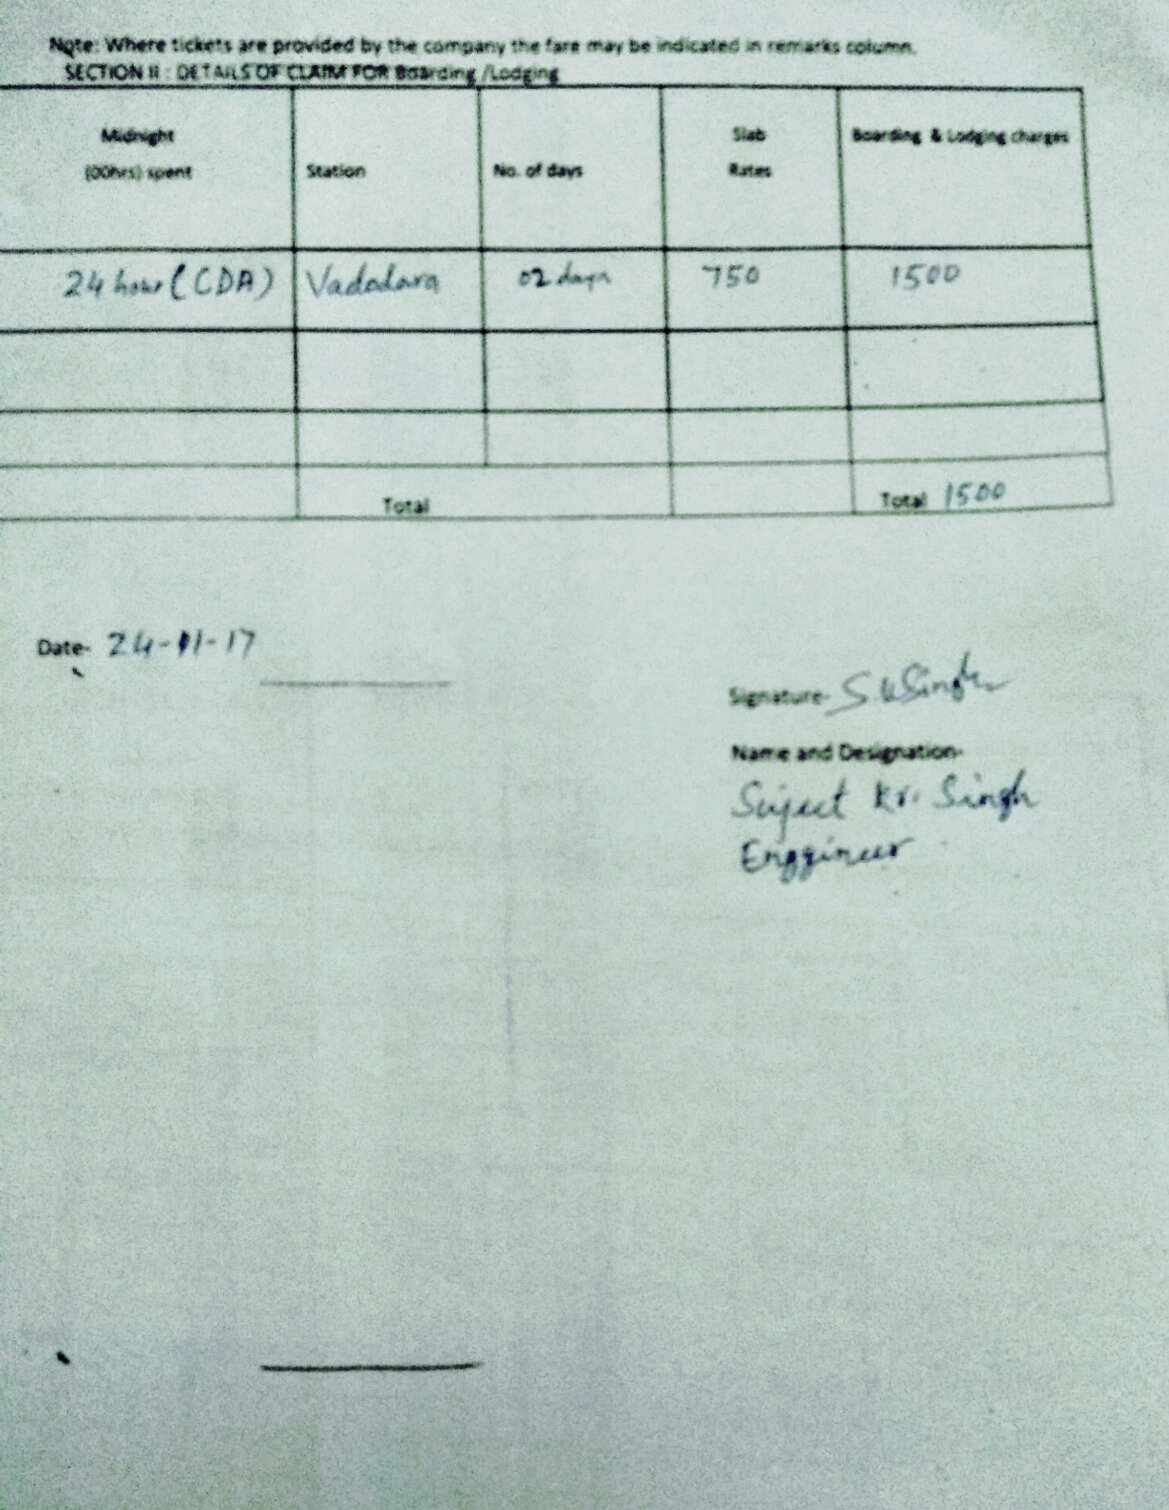 Note: Where tickets are provided by the company the fare may be indicated in remarks column.
SECTION II : DETAILS OF CLAIM FOR Boarding /Lodging
Midnight (00hrs) spent Station No. of days Slab Rates Boarding & Lodging charges
24 hour (CDA) Vadodara 02 days 750 1500
Total Total 1500
Date- 24-11-17
Signature- S K Singh
Name and Designation-
Sujeet Kr. Singh
Enggineer